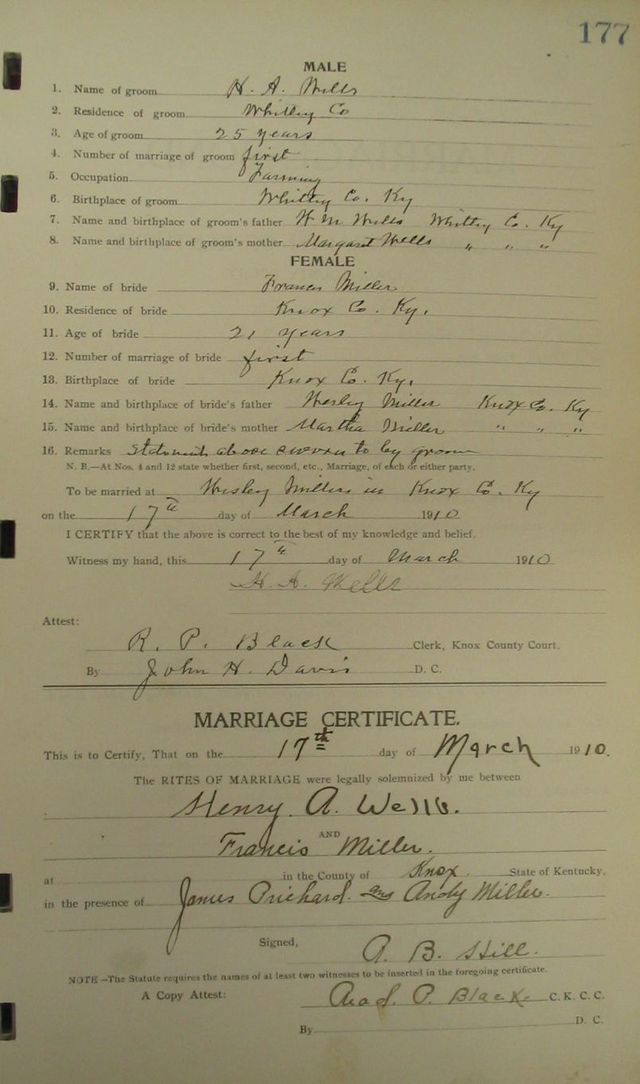 177
MALE
1. Name of groom H. A. Wells
2. Residence of groom Whitley Co
3. Age of groom 25 years
4. Number of marriage of groom first
5. Occupation Farming
6. Birthplace of groom Whitley Co. Ky
7. Name and birthplace of groom's father Wm Wells Whitley Co. Ky
8. Name and birthplace of groom's mother Margaret Wells " " "
FEMALE
9. Name of bride Francis Miller
10. Residence of bride Knox Co. Ky.
11. Age of bride 21 years
12. Number of marriage of bride first
13. Birthplace of bride Knox Co. Ky.
14. Name and birthplace of bride's father Wesley Miller Knox Co. Ky
15. Name and birthplace of bride's mother Martha Miller " " "
16. Remarks Statements above sworn to by groom
N. B.—At Nos. 4 and 12 state whether first, second, etc., Marriage, of each or either party.
To be married at Wesley Millers in Knox Co. Ky
on the 17th day of March 1910
I CERTIFY that the above is correct to the best of my knowledge and belief.
Witness my hand, this 17th day of March 1910
H. A. Wells
Attest:
R. P. Black Clerk, Knox County Court.
By John H. Davis D. C.
MARRIAGE CERTIFICATE.
This is to Certify, That on the 17th day of March 1910.
The RITES OF MARRIAGE were legally solemnized by me between
Henry A. Wells.
AND
Francis Miller.
at in the County of Knox State of Kentucky,
in the presence of James Prichard and Andy Miller.
Signed, A. B. Hill.
NOTE—The Statute requires the names of at least two witnesses to be inserted in the foregoing certificate.
A Copy Attest: P. Black C. K. C. C.
By D. C.